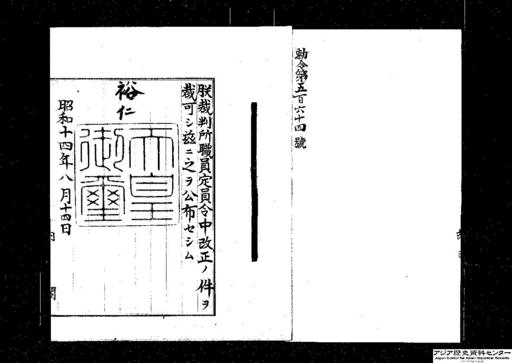 勅令第五百六十四號
朕裁判所職員定員令中改正ノ件ヲ
裁可シ茲ニ之ヲ公布セシム
裕仁
天皇
御璽
昭和十四年八月十四日
アジア歴史資料センター
Japan Center for Asian Historical Records